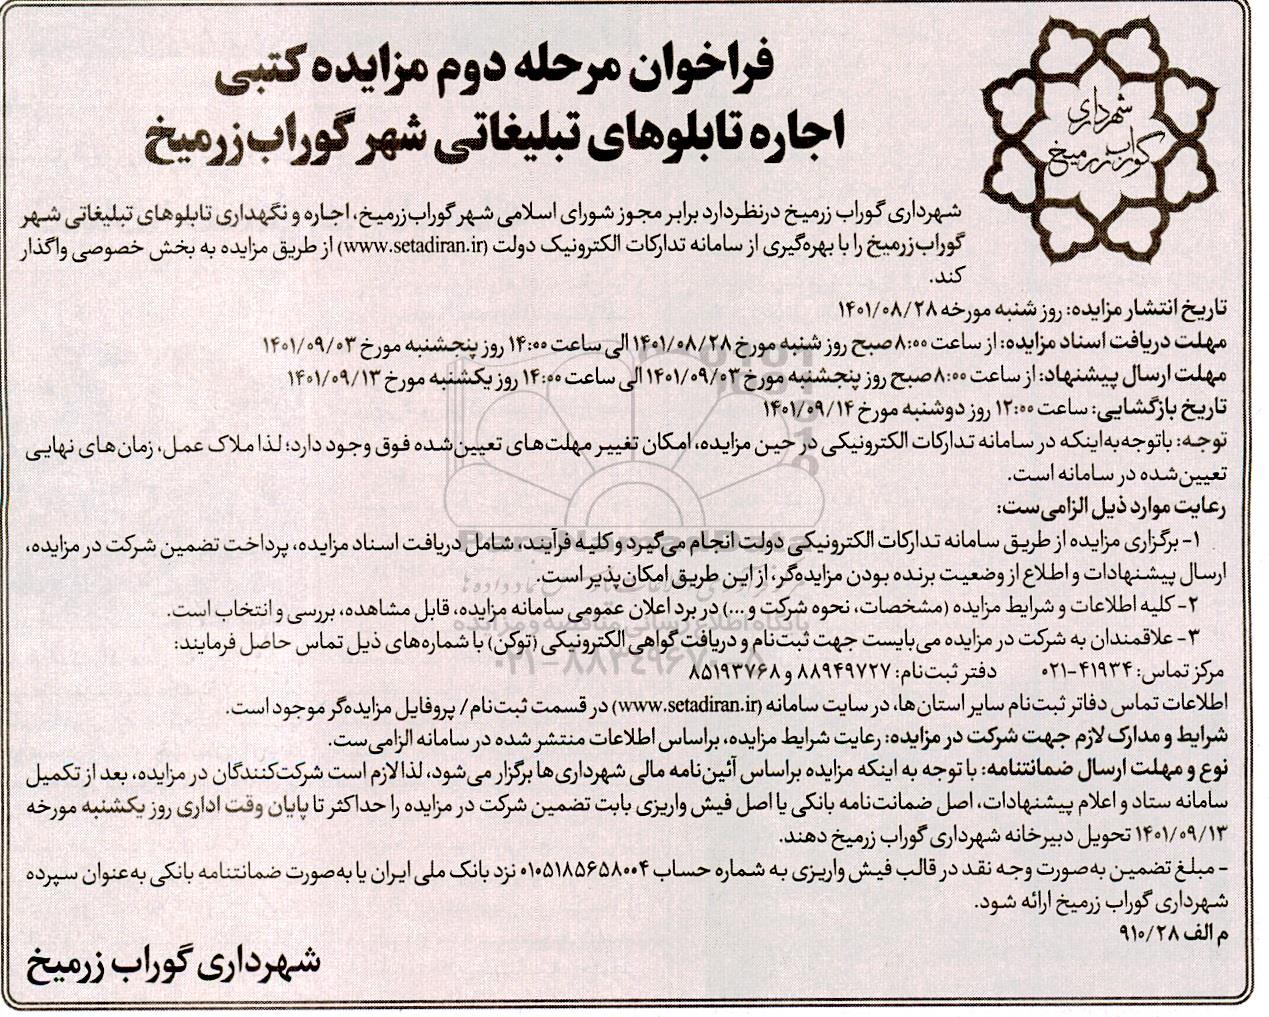 فراخوان مرحله دوم مزایده کتبی
اجاره تابلوهای تبلیغاتی شهر گوراب‌زرمیخ
شهرداری
گوراب زرمیخ
شهرداری گوراب زرمیخ درنظردارد برابر مجوز شورای اسلامی شهر گوراب‌زرمیخ، اجاره و نگهداری تابلوهای تبلیغاتی شهر
گوراب‌زرمیخ را با بهره‌گیری از سامانه تدارکات الکترونیک دولت (www.setadiran.ir) از طریق مزایده به بخش خصوصی واگذار
کند.
تاریخ انتشار مزایده: روز شنبه مورخه ۱۴۰۱/۰۸/۲۸
مهلت دریافت اسناد مزایده: از ساعت ۸:۰۰ صبح روز شنبه مورخ ۱۴۰۱/۰۸/۲۸ الی ساعت ۱۴:۰۰ روز پنجشنبه مورخ ۱۴۰۱/۰۹/۰۳
مهلت ارسال پیشنهاد: از ساعت ۸:۰۰ صبح روز پنجشنبه مورخ ۱۴۰۱/۰۹/۰۳ الی ساعت ۱۴:۰۰ روز یکشنبه مورخ ۱۴۰۱/۰۹/۱۳
تاریخ بازگشایی: ساعت ۱۲:۰۰ روز دوشنبه مورخ ۱۴۰۱/۰۹/۱۴
توجه: باتوجه‌به‌اینکه در سامانه تدارکات الکترونیکی در حین مزایده، امکان تغییر مهلت‌های تعیین‌شده فوق وجود دارد؛ لذا ملاک عمل، زمان‌های نهایی
تعیین‌شده در سامانه است.
رعایت موارد ذیل الزامی‌ست:
۱- برگزاری مزایده از طریق سامانه تدارکات الکترونیکی دولت انجام می‌گیرد و کلیه فرآیند، شامل دریافت اسناد مزایده، پرداخت تضمین شرکت در مزایده،
ارسال پیشنهادات و اطلاع از وضعیت برنده بودن مزایده‌گر، از این طریق امکان‌پذیر است.
۲- کلیه اطلاعات و شرایط مزایده (مشخصات، نحوه شرکت و ...) در برد اعلان عمومی سامانه مزایده، قابل مشاهده، بررسی و انتخاب است.
۳- علاقمندان به شرکت در مزایده می‌بایست جهت ثبت‌نام و دریافت گواهی الکترونیکی (توکن) با شماره‌های ذیل تماس حاصل فرمایند:
مرکز تماس: ۴۱۹۳۴-۰۲۱ دفتر ثبت‌نام: ۸۸۹۴۹۷۲۷ و ۸۵۱۹۳۷۶۸
اطلاعات تماس دفاتر ثبت‌نام سایر استان‌ها، در سایت سامانه (www.setadiran.ir) در قسمت ثبت‌نام/ پروفایل مزایده‌گر موجود است.
شرایط و مدارک لازم جهت شرکت در مزایده: رعایت شرایط مزایده، براساس اطلاعات منتشر شده در سامانه الزامی‌ست.
نوع و مهلت ارسال ضمانتنامه: با توجه به اینکه مزایده براساس آئین‌نامه مالی شهرداری‌ها برگزار می‌شود، لذا لازم است شرکت‌کنندگان در مزایده، بعد از تکمیل
سامانه ستاد و اعلام پیشنهادات، اصل ضمانت‌نامه بانکی یا اصل فیش واریزی بابت تضمین شرکت در مزایده را حداکثر تا پایان وقت اداری روز یکشنبه مورخه
۱۴۰۱/۰۹/۱۳ تحویل دبیرخانه شهرداری گوراب زرمیخ دهند.
- مبلغ تضمین به‌صورت وجه نقد در قالب فیش واریزی به شماره حساب ۰۱۰۵۱۸۵۶۵۸۰۰۴ نزد بانک ملی ایران یا به‌صورت ضمانتنامه بانکی به‌عنوان سپرده
شهرداری گوراب زرمیخ ارائه شود.
م الف ۹۱۰/۲۸
شهرداری گوراب زرمیخ